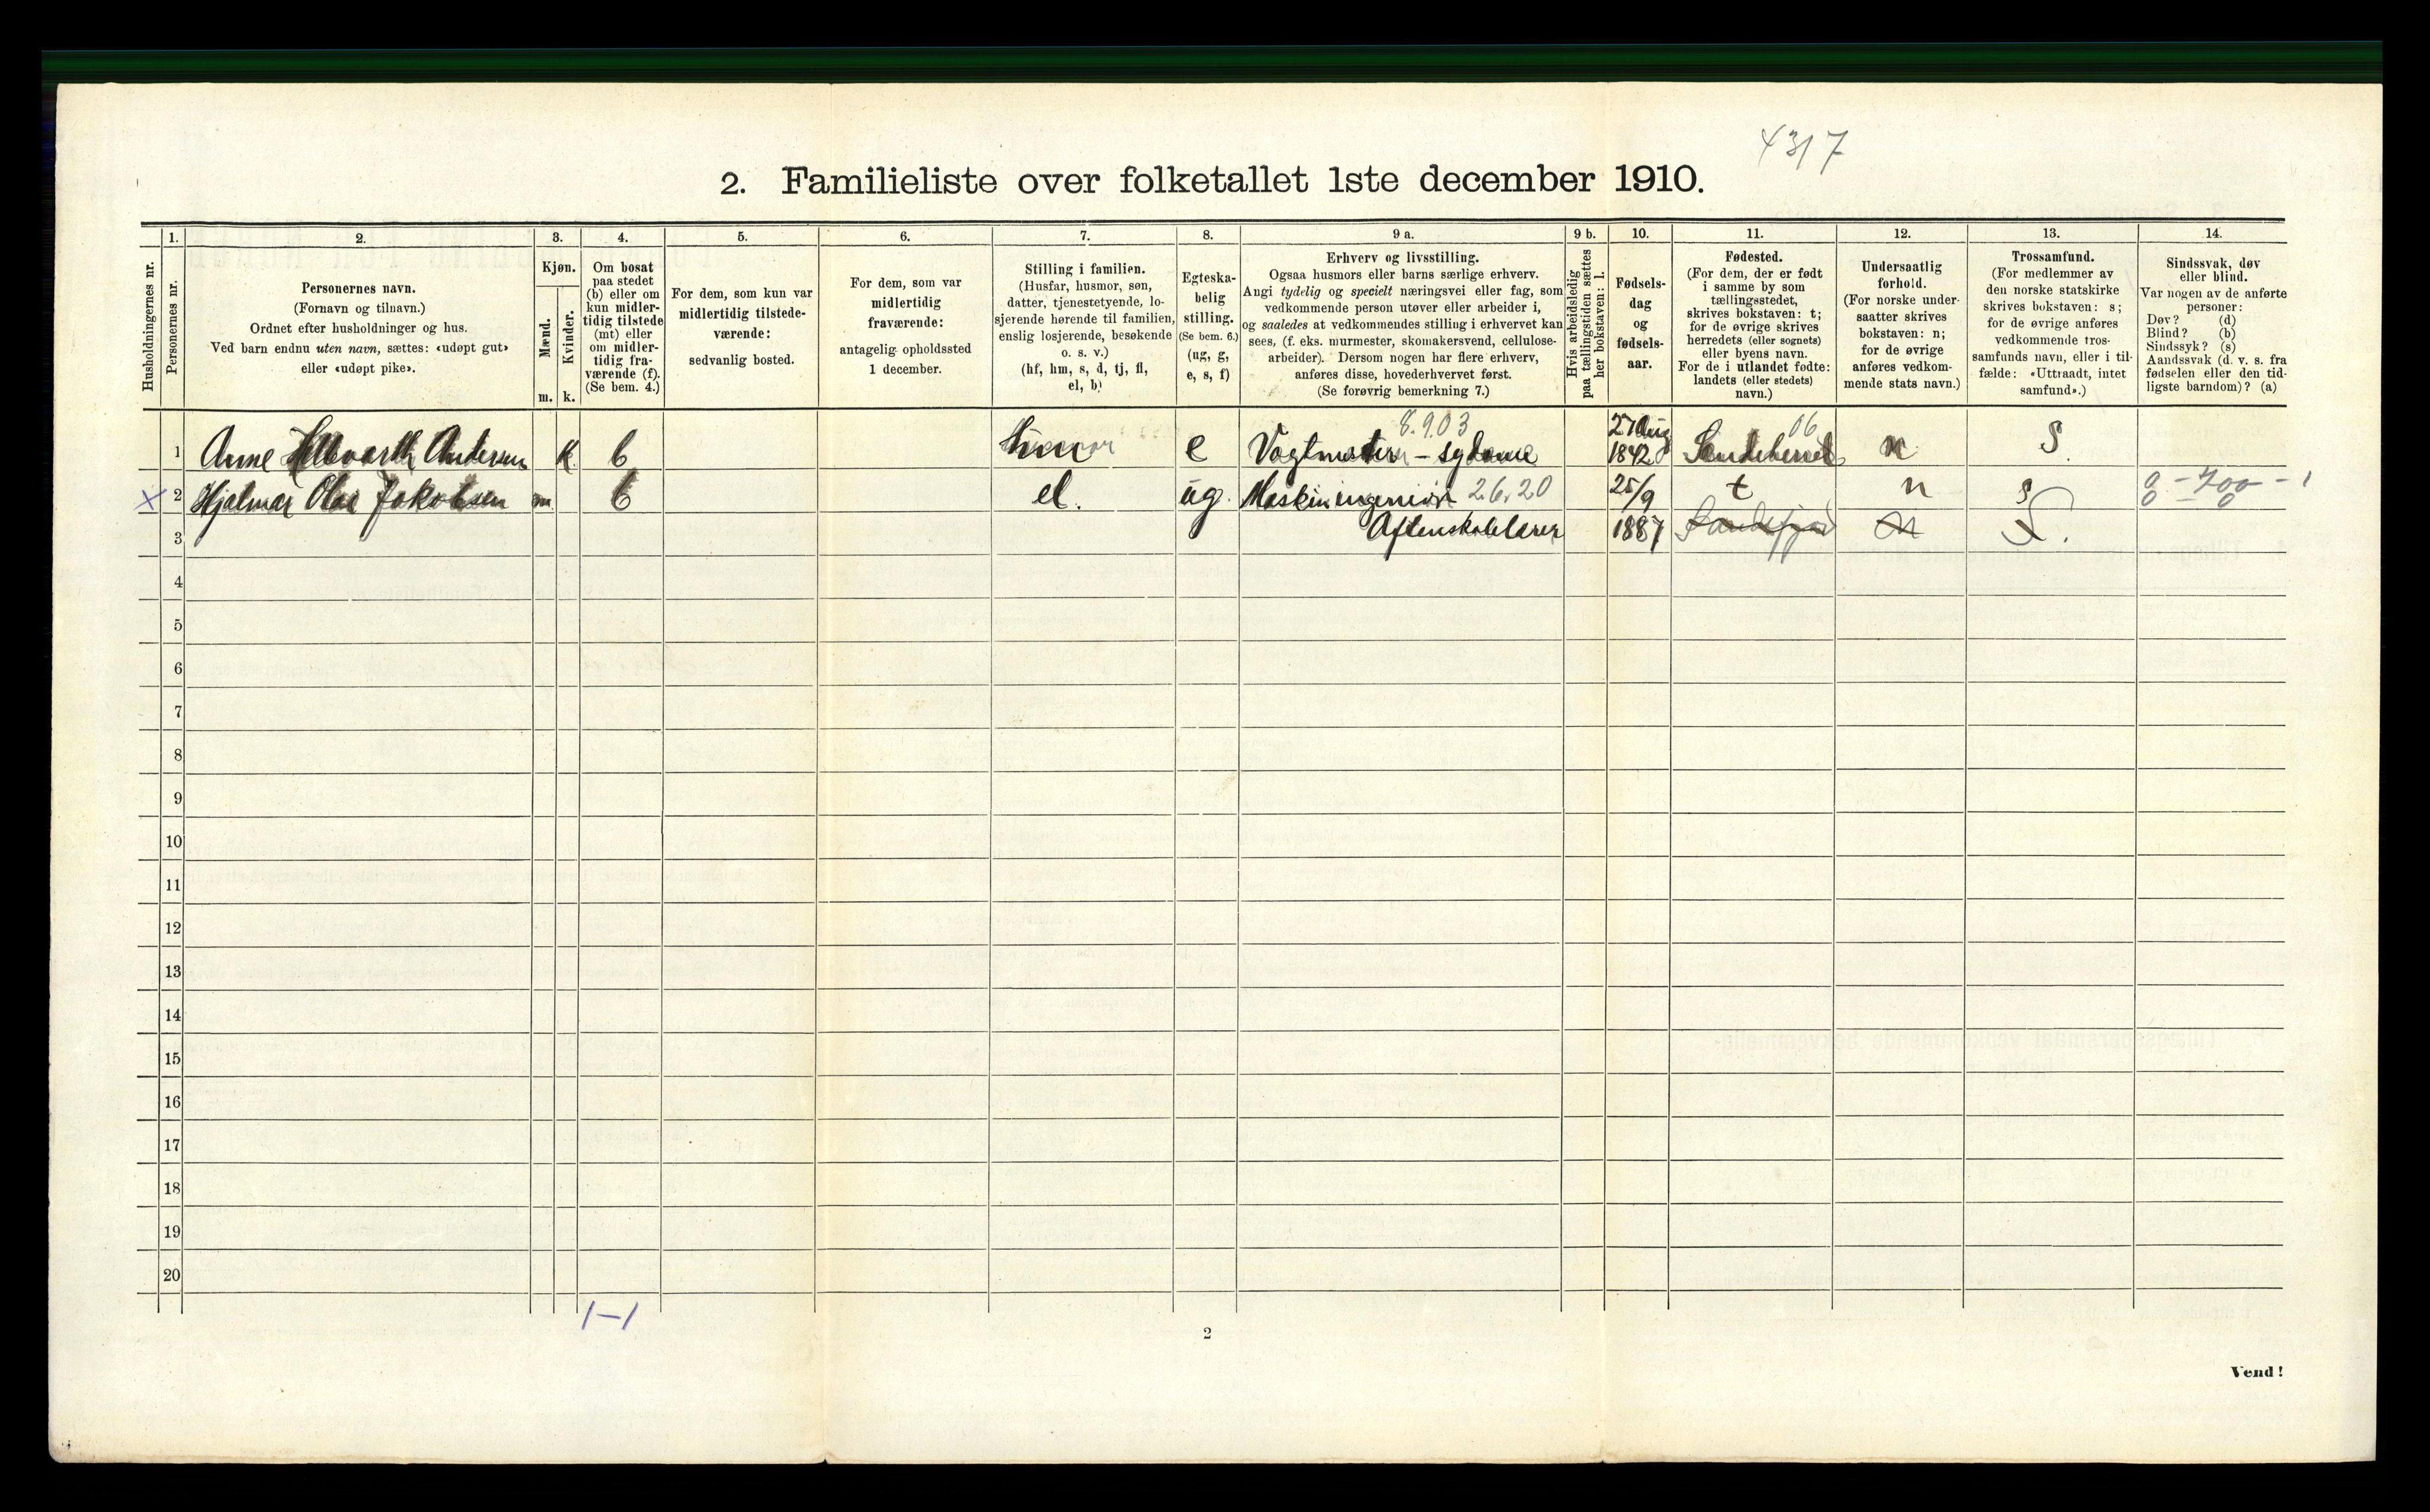 4317
2. Familieliste over folketallet 1ste december 1910.
Husholdningernes nr.
1.
Personernes nr.
2.
Personernes navn.
(Fornavn og tilnavn.)
Ordnet efter husholdninger og hus.
Ved barn endnu uten navn, sættes: «udøpt gut»
eller «udøpt pike».
3.
Kjøn.
Mænd.
Kvinder.
m. k.
4.
Om bosat
paa stedet
(b) eller om
kun midler-
tidig tilstede
(mt) eller
om midler-
tidig fra-
værende (f).
(Se bem. 4.)
5.
For dem, som kun var
midlertidig tilstede-
værende:
sedvanlig bosted.
6.
For dem, som var
midlertidig
fraværende:
antagelig opholdssted
1 december.
7.
Stilling i familien.
(Husfar, husmor, søn,
datter, tjenestetyende, lo-
sjerende hørende til familien,
enslig losjerende, besøkende
o. s. v.)
(hf, hm, s, d, tj, fl,
el, b)
8.
Egteska-
belig
stilling.
(Se bem. 6.)
(ug, g,
e, s, f)
9 a.
Erhverv og livsstilling.
Ogsaa husmors eller barns særlige erhverv.
Angi tydelig og specielt næringsvei eller fag, som
vedkommende person utøver eller arbeider i,
og saaledes at vedkommendes stilling i erhvervet kan
sees, (f. eks. murmester, skomakersvend, cellulose-
arbeider). Dersom nogen har flere erhverv,
anføres disse, hovederhvervet først.
(Se forøvrig bemerkning 7.)
9 b.
Hvis arbeidsledig
paa tællingstiden sættes
her bokstaven: l.
10.
Fødsels-
dag
og
fødsels-
aar.
11.
Fødested.
(For dem, der er født
i samme by som
tællingsstedet,
skrives bokstaven: t;
for de øvrige skrives
herredets (eller sognets)
eller byens navn.
For de i utlandet fødte:
landets (eller stedets)
navn.)
12.
Undersaatlig
forhold.
(For norske under-
saatter skrives
bokstaven: n;
for de øvrige
anføres vedkom-
mende stats navn.)
13.
Trossamfund.
(For medlemmer av
den norske statskirke
skrives bokstaven: s;
for de øvrige anføres
vedkommende tros-
samfunds navn, eller i til-
fælde: «Uttraadt, intet
samfund».)
14.
Sindssvak, døv
eller blind.
Var nogen av de anførte
personer:
Døv? (d)
Blind? (b)
Sindssyk? (s)
Aandssvak (d. v. s. fra
fødselen eller den tid-
ligste barndom)? (a)
8.9.03 27 Aug 06
1 Anne Andersen k b hm e – sydame 1842 n S.
X 2 Hjalmar Olai Jakobsen m b el. ug. Maskiningeniør 26.20 25/9 t n s 0 - 700 - 1
0 - 0
3 Aftenskolelærer 1887 Sandefjord n S.
4
5
6
7
8
9
10
11
12
13
14
15
16
17
18
19
20
1–1
2
Vend!